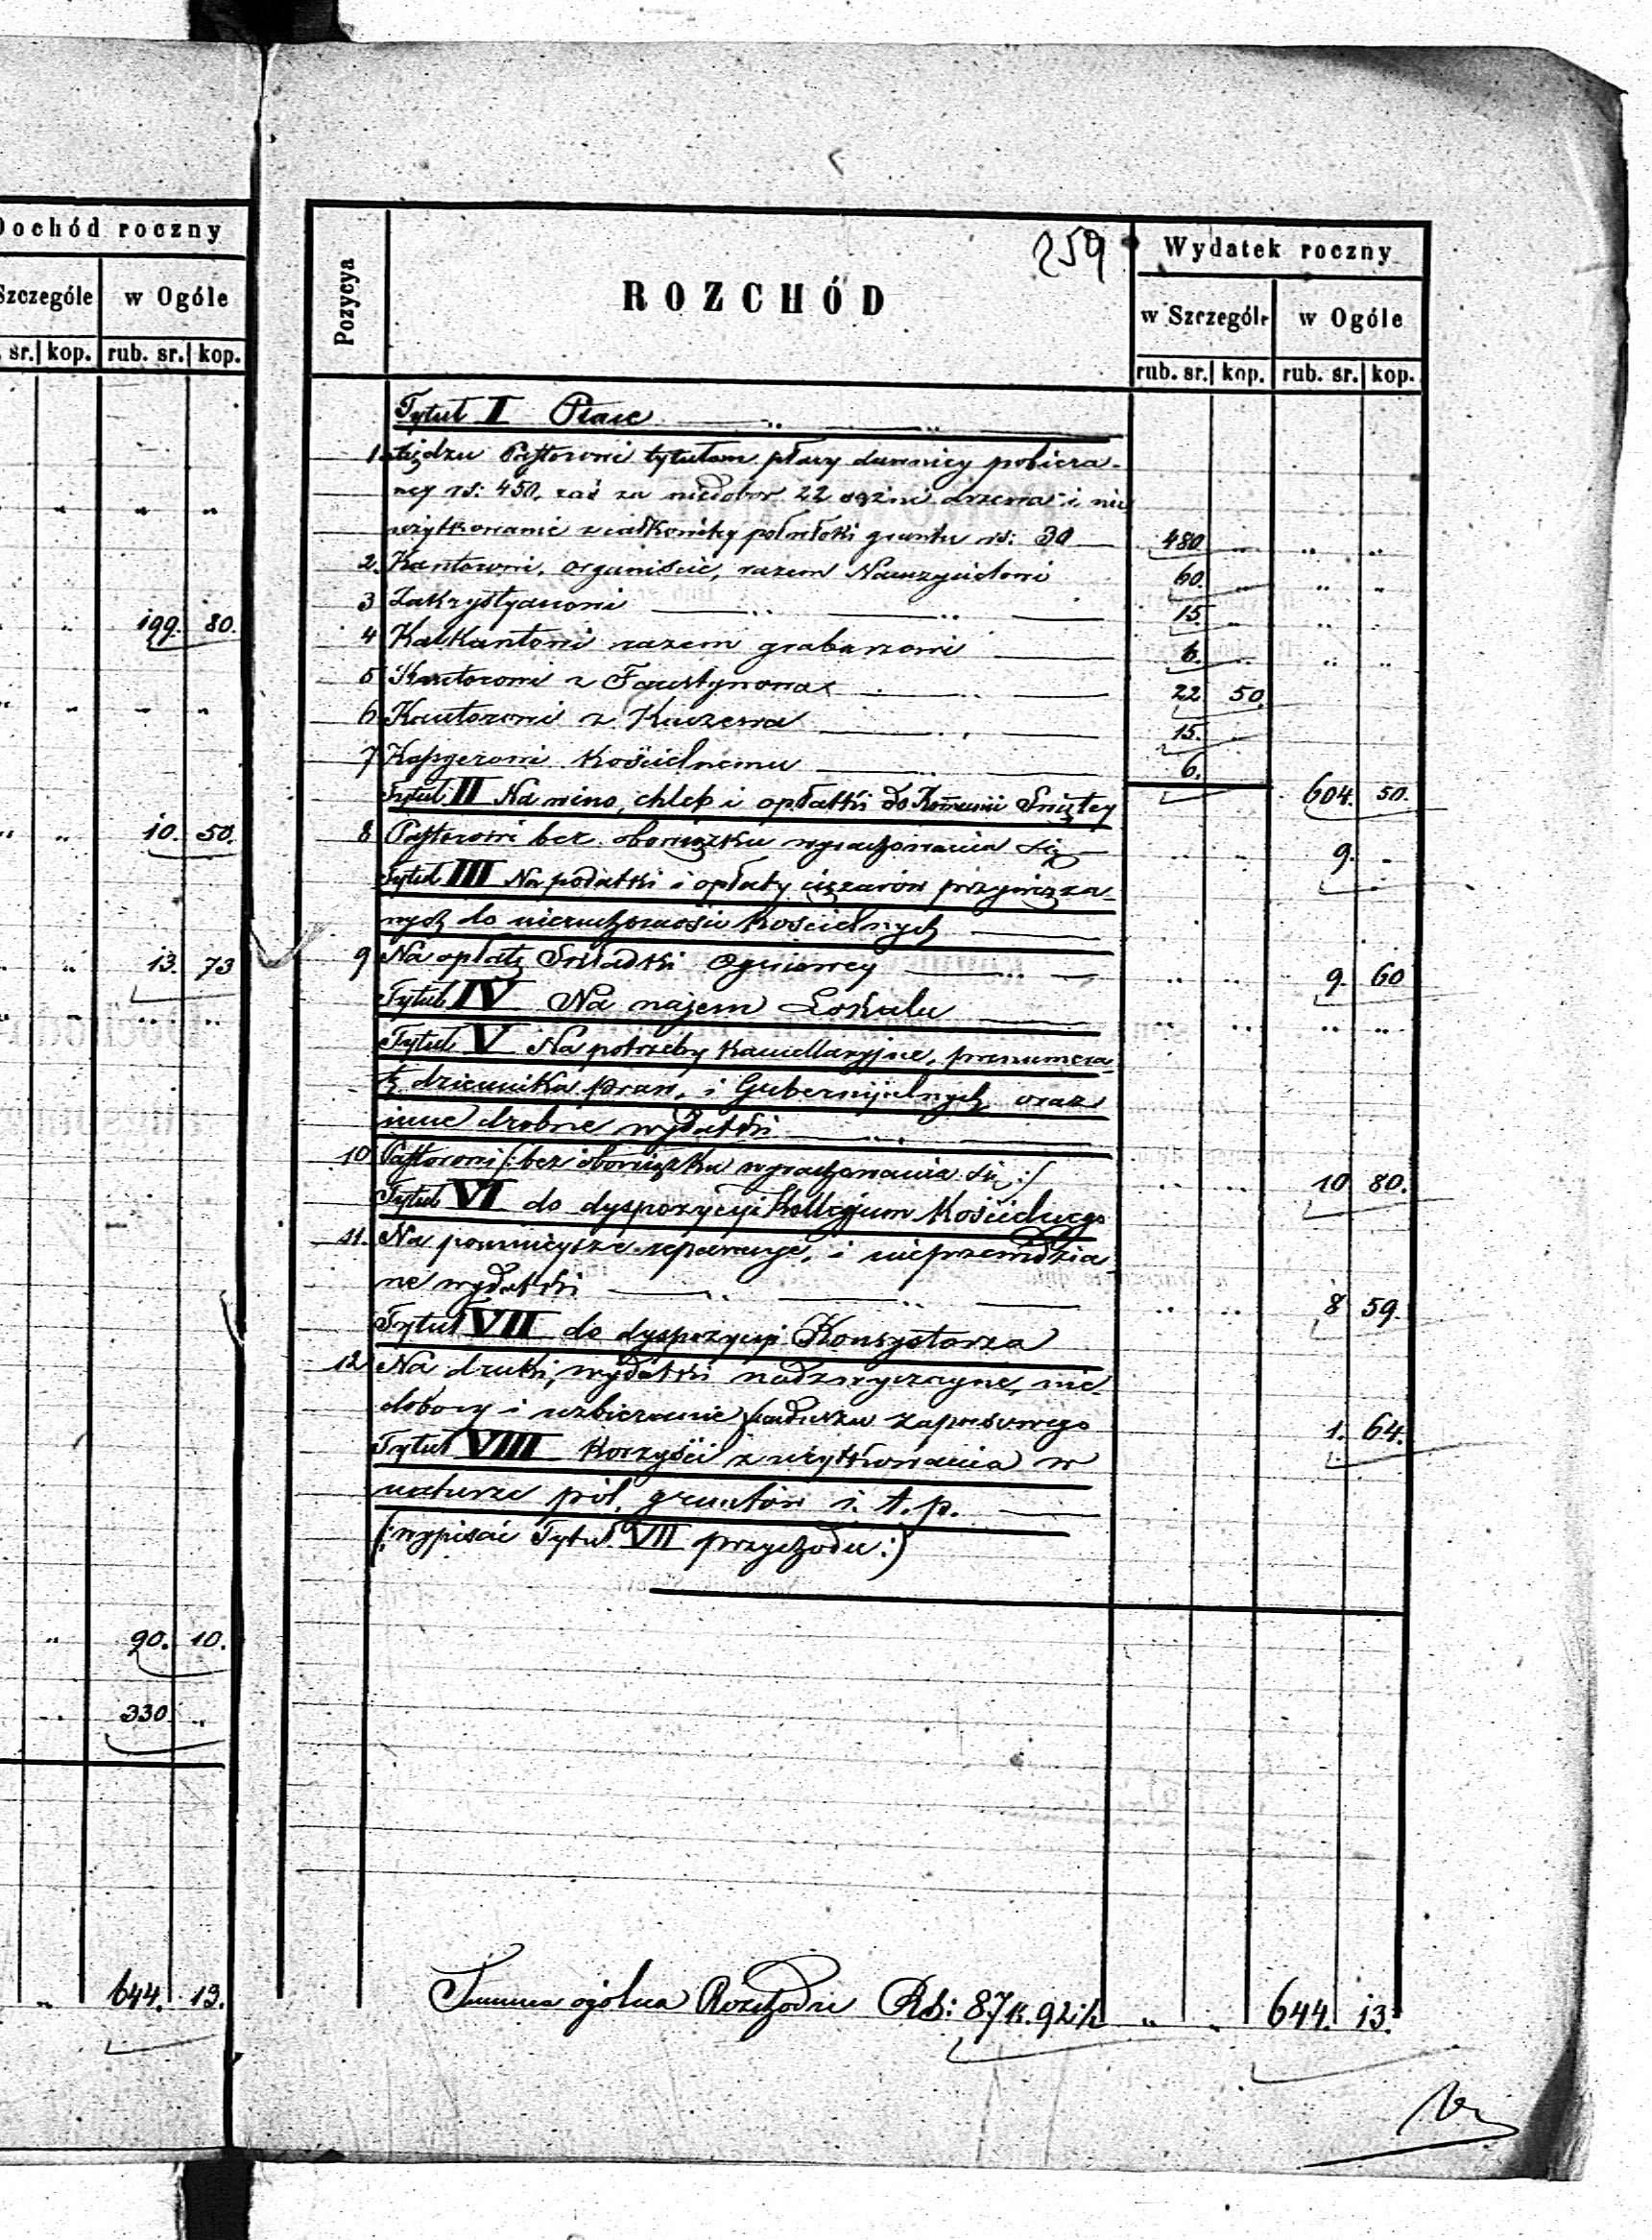 Dochód roczny
Szczególe w Ogóle
sr. kop. rub. sr. kop.
199. 80.
10. 50.
13. 73
90. 10.
330
644. 13.
259
Pozycya
ROZCHÓD
Wydatek roczny
w Szczególe w Ogóle
rub. sr. kop. rub. sr. kop.
Tytuł I Płace
1. Xiędzu Pastorowi tytułem płacy dawniey pobiera-
ney rs: 450, zaś za niedobor 22 sążni drzewa i nie
użytkowanie z całkowitey półwłóki gruntu rs: 30 480
2. Kantorowi, organiście, razem Nauczycielowi 60.
3 Zakrystyanowi 15.
4 Kalkantowi razem grabarzowi 6.
5 Kantorowi z Faustynowa 22 50.
6 Kantorowi z Kuczewa 15.
7 Kassyerowi kościelnemu 6.
604. 50.
Tytuł II Na wino, chleb i opłatki do Kommunii Świętey
8 Pastorowi bez obowiązku wyrachowania się 9. -
Tytuł III Na podatki i opłaty ciężarów przywiąza-
nych do nieruchomości kościelnych
9 Na opłatę Składki Ogniowey 9. 60
Tytuł IV Na najem Lokalu
Tytuł V Na potrzeby kancellaryjne, prenumera-
tę dziennika praw, i Gubernijalnych, oraz
inne drobne wydatki
10 Pastorowi (: bez obowiązku wyrachowania się :) 10 80.
Tytuł VI do dyspozycyi Kollegjum Kościelnego
11. Na pomnieysze reparacye, i nieprzewidzia-
ne wydatki 8 59.
Tytuł VII do dyspozycyi Konsystorza
12 Na druki, wydatki nadzwyczayne, nie-
dobory i uzbieranie funduszu zapasowego 1. 64.
Tytuł VIII Korzyści z użytkowania w
naturze pól, gruntów i. t. p.
(: wypisać Tytuł VII przychodu :)
Summa ogólna Rozchodu Rs: 87 k. 92 ½ 644. 13.